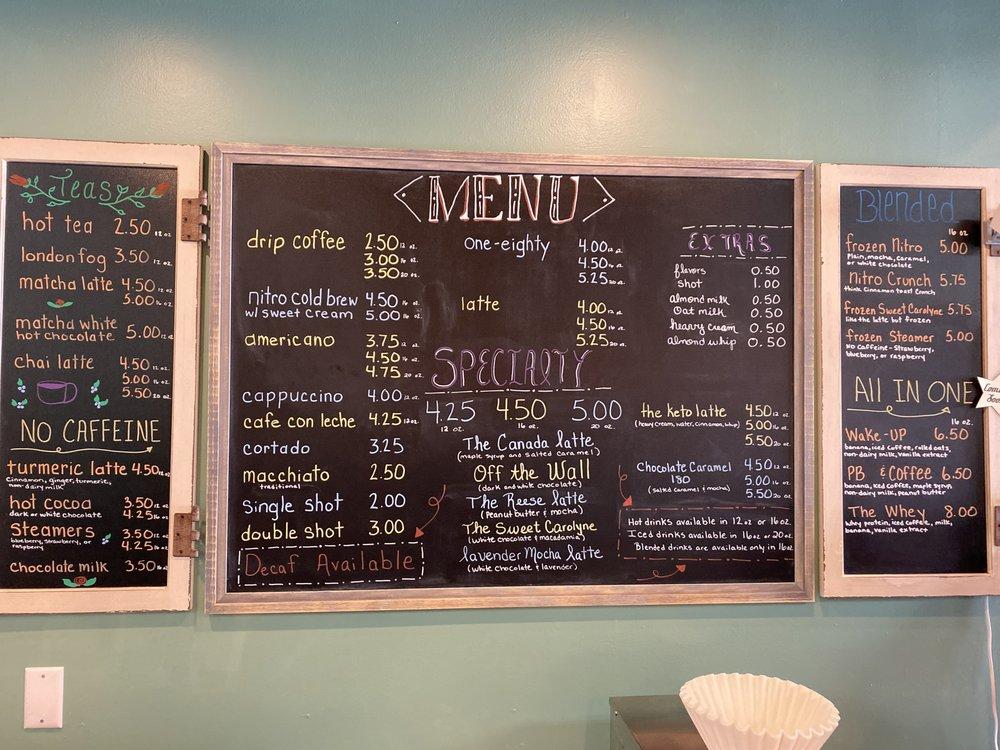 Teas
hot tea 2.50 12 oz.
london fog 3.50 12 oz.
matcha latte 4.50 12 oz.
5.00 16 oz.
matcha white
hot chocolate 5.00 12 oz.
chai latte 4.50 12 oz.
5.00 16 oz.
5.50 20 oz.
NO CAFFEINE
turmeric latte 4.50 12 oz.
Cinnamon, ginger, turmeric,
non-dairy milk
hot cocoa 3.50 12 oz.
dark or white chocolate 4.25 16 oz.
Steamers 3.50 12 oz.
blueberry, strawberry, or
raspberry 4.25 16 oz.
chocolate milk 3.50 16 oz.
<MENU>
drip coffee 2.50 12 oz.
3.00 16 oz.
3.50 20 oz.
nitro cold brew 4.50 16 oz.
w/ sweet cream 5.00 16 oz.
americano 3.75 12 oz.
4.50 16 oz.
4.75 20 oz.
cappuccino 4.00 12 oz.
cafe con leche 4.25 12 oz.
cortado 3.25
macchiato 2.50
traditional
Single shot 2.00
double shot 3.00
Decaf Available
one-eighty 4.00 12 oz.
4.50 16 oz.
5.25 20 oz.
latte 4.00 12 oz.
4.50 16 oz.
5.25 20 oz.
SPECIALTY
4.25 4.50 5.00
12 oz. 16 oz. 20 oz.
The Canada latte
(maple syrup and salted caramel)
Off the Wall
(dark and white chocolate)
The Reese latte
(Peanut butter & mocha)
The Sweet Carolyne
(White chocolate & macadamia)
lavender Mocha latte
(White Chocolate & lavender)
EXTRAS
flavors 0.50
shot 1.00
almond milk 0.50
Oat milk 0.50
heavy cream 0.50
almond whip 0.50
the keto latte 4.50 12 oz.
(heavy cream, water, cinnamon, whip) 5.00 16 oz.
5.50 20 oz.
Chocolate Caramel 4.50 12 oz.
180 5.00 16 oz.
(salted caramel & mocha) 5.50 20 oz.
Hot drinks available in 12 oz or 16 oz.
Iced drinks available in 16 oz or 20 oz.
Blended drinks are available only in 16 oz
Blended
16 oz
frozen Nitro 5.00
Plain, mocha, caramel,
or white chocolate
Nitro Crunch 5.75
think Cinnamon toast Crunch
frozen Sweet Carolyne 5.75
like the latte but frozen
frozen Steamer 5.00
No caffeine - Strawberry,
blueberry, or raspberry
ALL IN ONE
16 oz.
Wake-UP 6.50
banana, iced coffee, rolled oats,
non-dairy milk, Vanilla extract
PB & Coffee 6.50
banana, iced coffee, maple syrup,
non-dairy milk, peanut butter
The Whey 8.00
whey protein, iced coffee, milk,
banana, vanilla extract
Coming
Soon